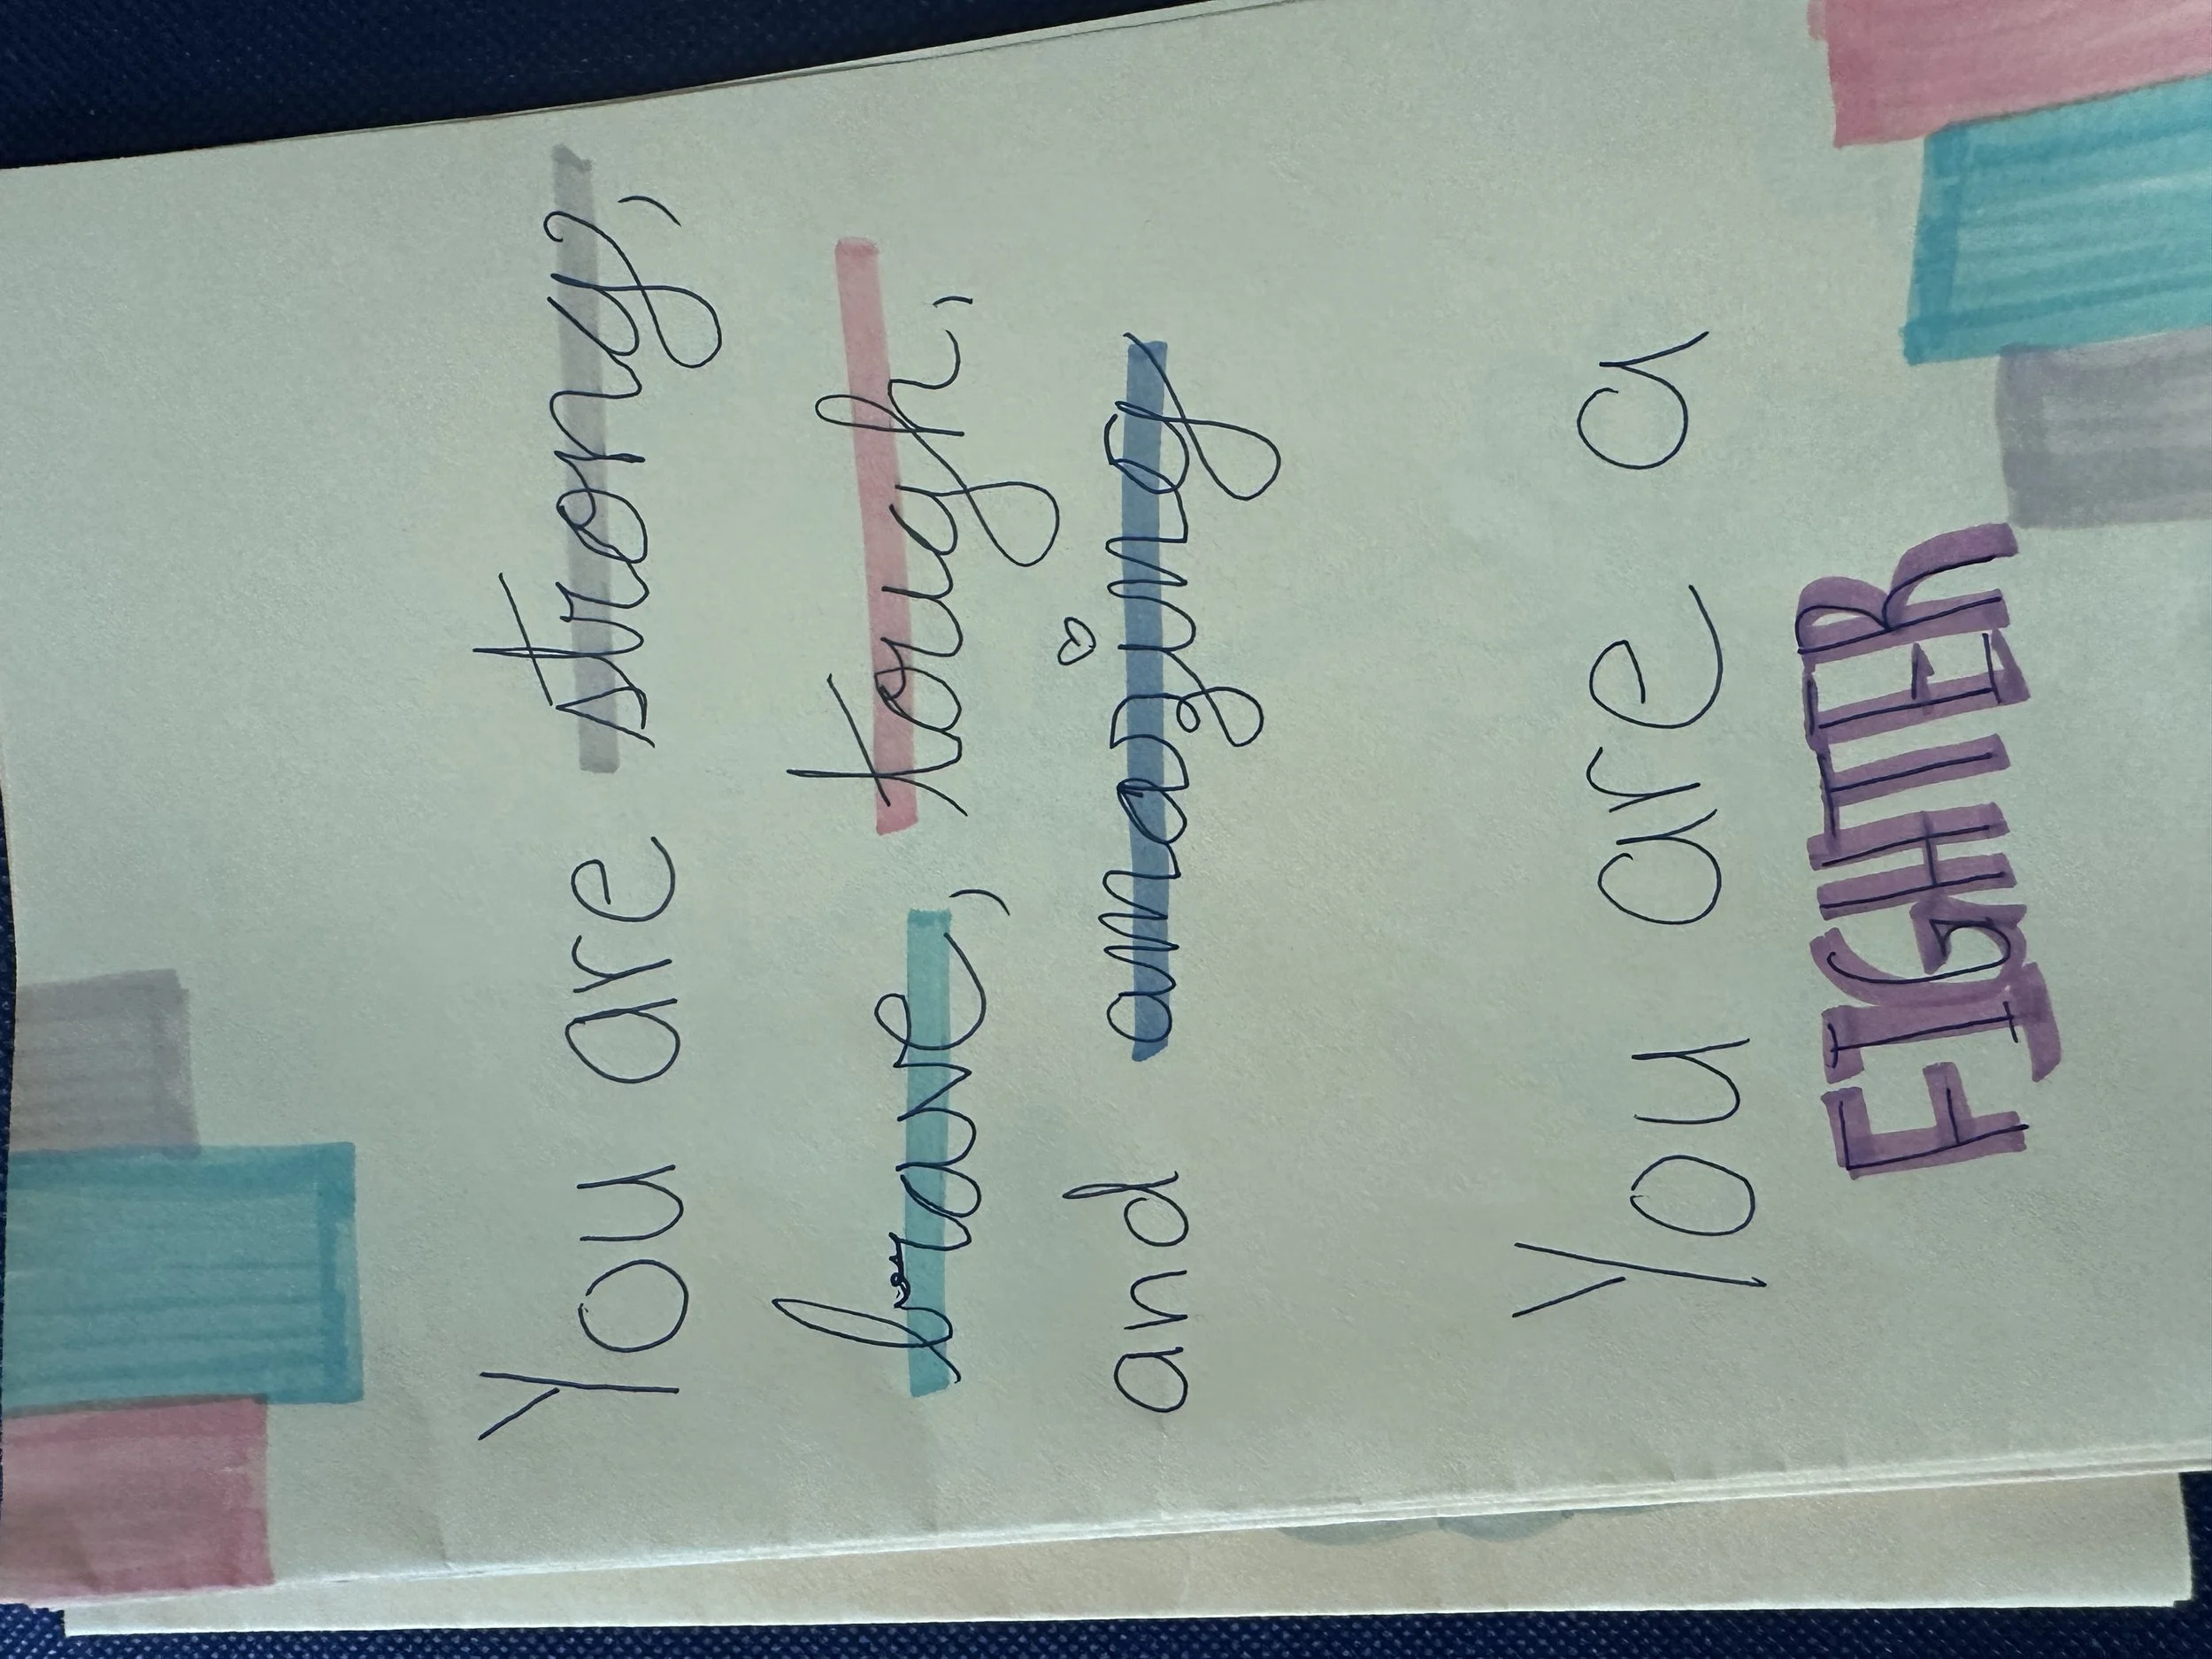 You are strong,
brave, tough,
and amazing
You are a
FIGHTER